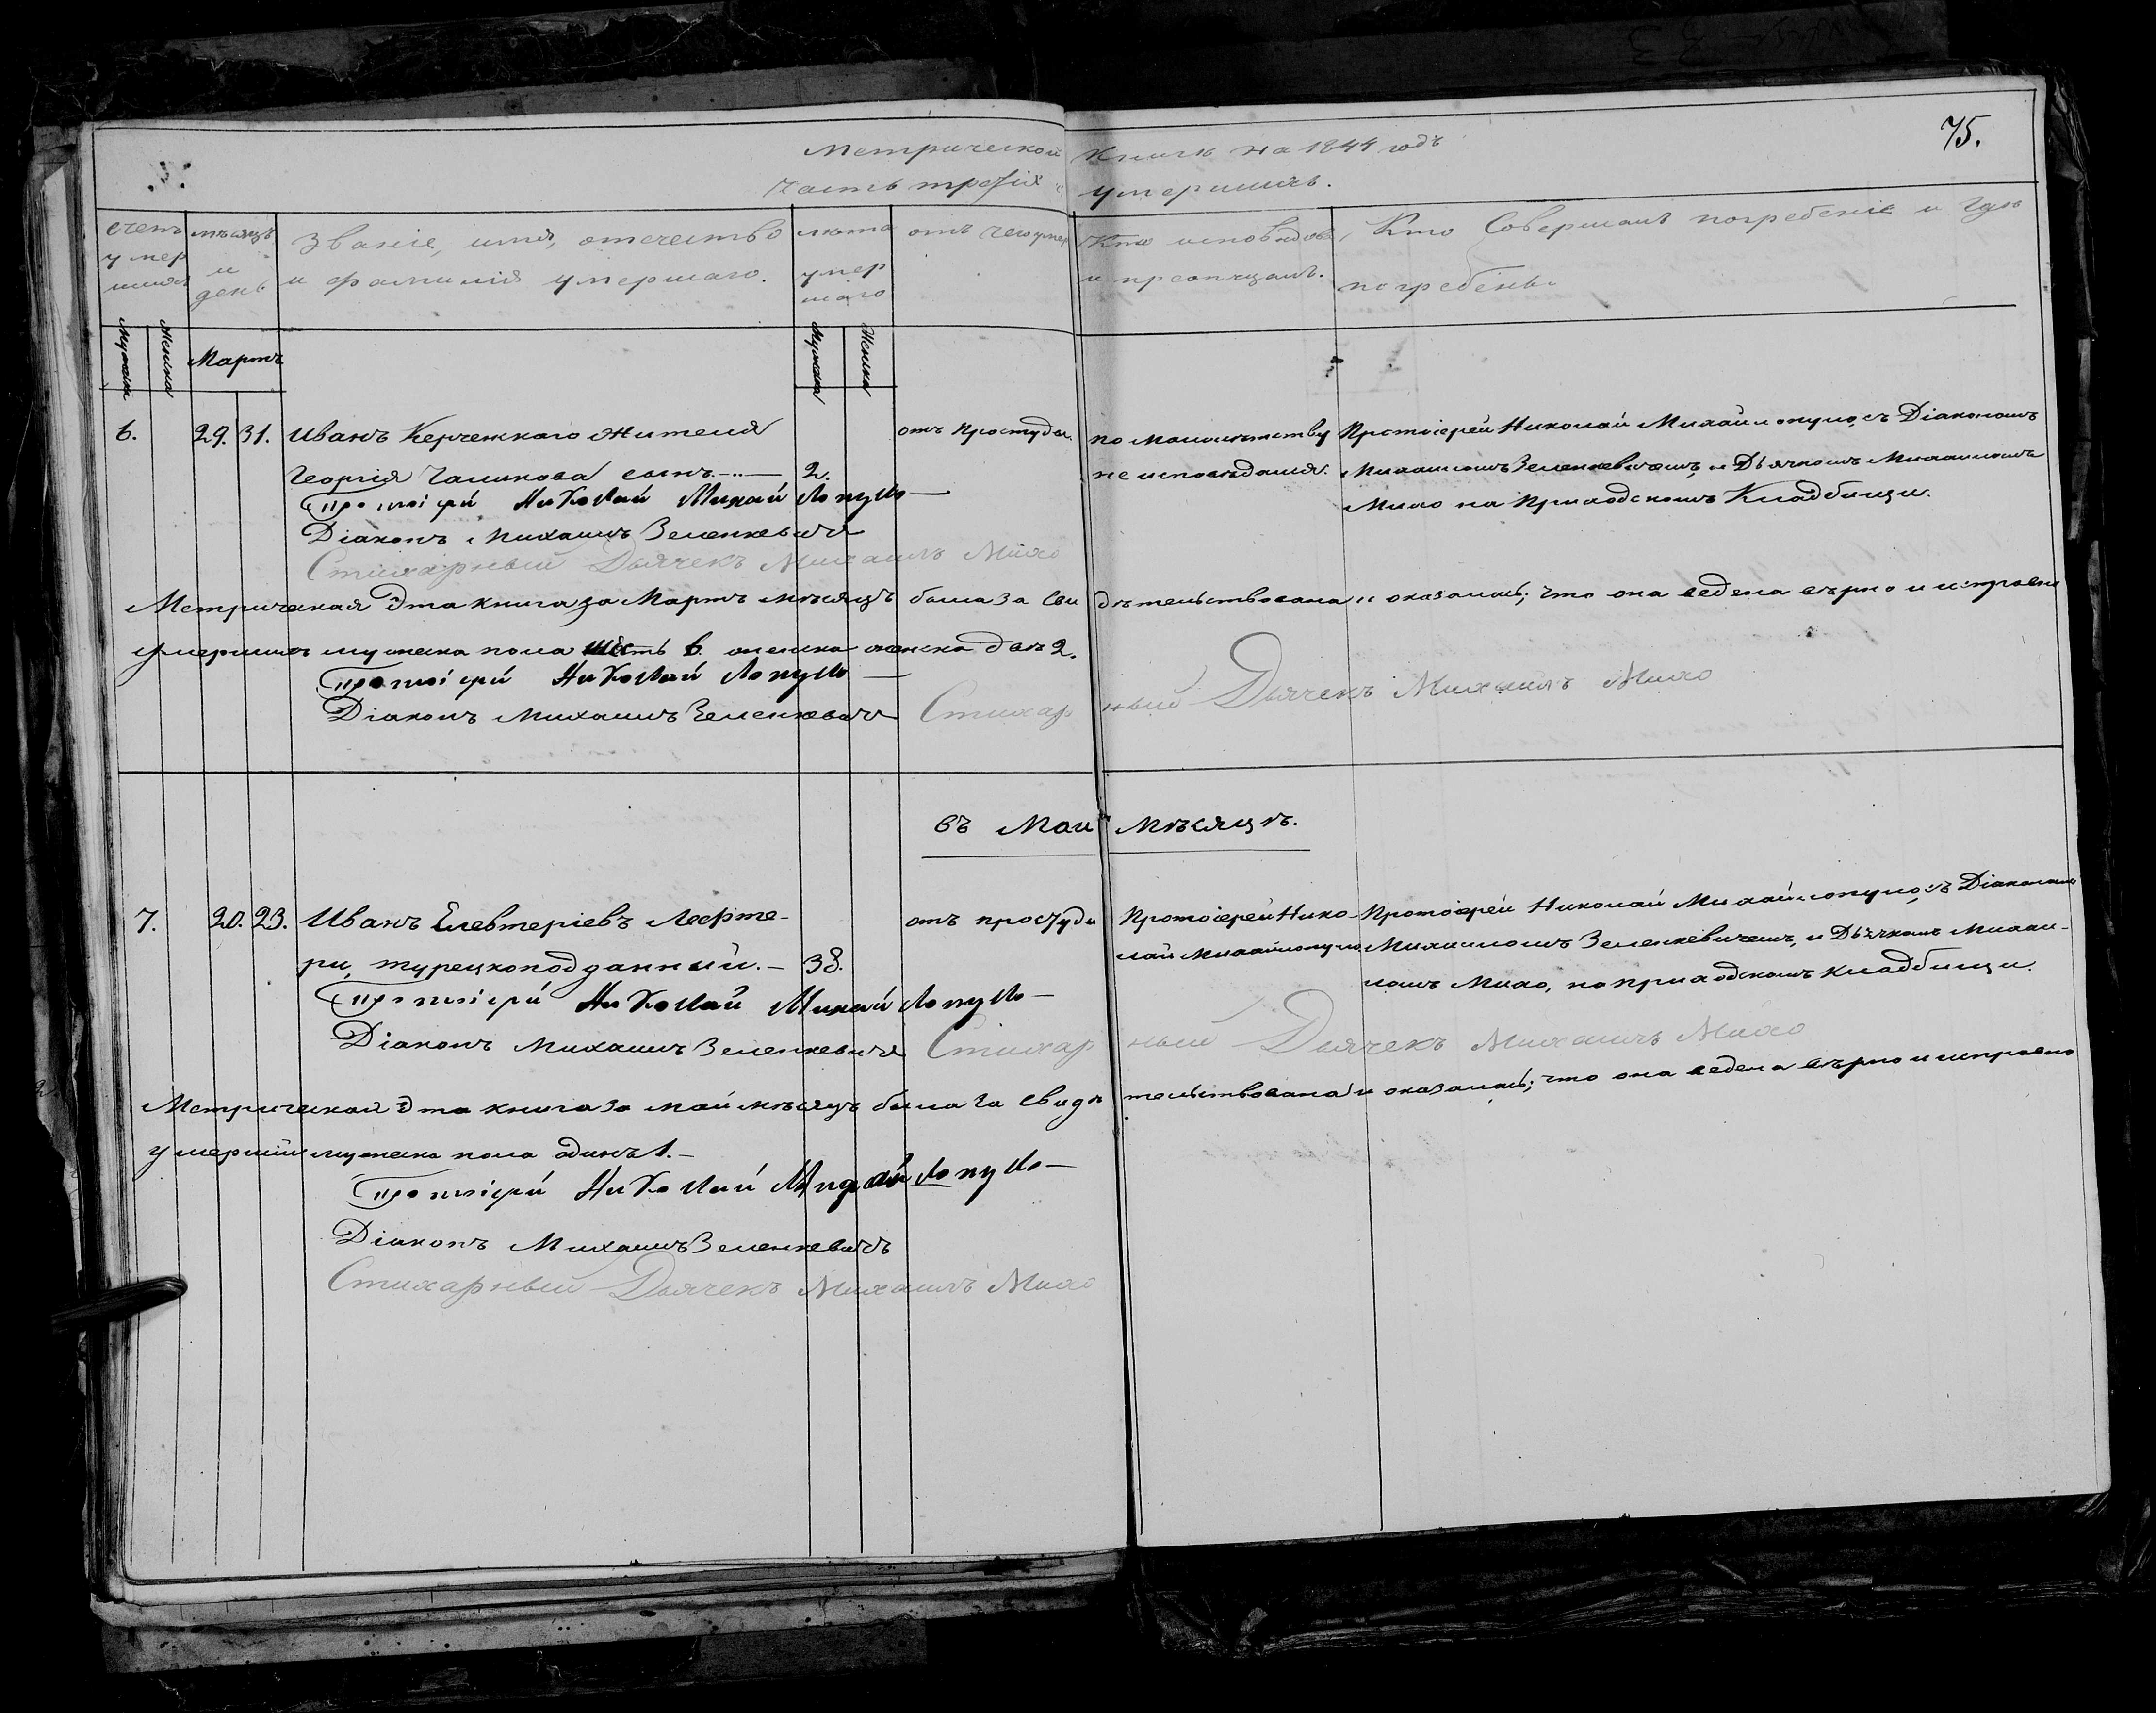 75.
Метрической книги на 1844 годъ
часть третія умершихъ.
счетъ умершихъ
мѣсяцъ и день
Званіе, имя, отечество и фамилія умершаго.
лѣта умершаго
отъ чего умер
Кто исповѣдовъ и преопщалъ.
Кто Совершалъ погребеніе и гдѣ погребены.
Мужска Женска Мартъ Мужска Женска
6. 29. 31. Иванъ Керченскаго Жителя отъ простуды. по малолѣтству Протоіерей Николай Михайлопуло, съ Діакономъ
Георгія Чаликова сынъ 2. не исповѣдался. Михаиломъ Зеленкевичемъ, и Дьячкомъ Михаиломъ
Михо на Приходскомъ Кладбищи.
Протоіерй Николай Михайлопуло
Діаконъ Михаилъ Зеленкевичъ
Стихарный Дьячекъ Михаилъ Михо
Метрическая Эта книга за Мартъ мѣсяцъ была за Свидѣтельствована и оказалась; что она ведена вѣрно и исправно
умершихъ мужеска пола шесть 6. женска двѣ 2.
Протоіерй Николай Лопуло
Діаконъ Михаилъ Зеленкевичъ Стихарный Дьячекъ Михаилъ Михо
въ Маи Мѣсяцѣ.
7. 20. 23. Иванъ Елевтеріевъ Лефте- отъ простуды Протоіерей Нико- Протоіерей Николай Михайлопуло, съ Діакономъ
ри, турецкоподданный. 38. лай Михайлопуло Михаиломъ Зеленкевичемъ, и Дьячкомъ Михаи-
ломъ Михо, на приходскомъ кладбищи.
Протоіерй Николай Михайлопуло
Діаконъ Михаилъ Зеленкевичъ Стихарный Дьячекъ Михаилъ Михо
Метрическая Эта книга за май мѣсяцъ была За Свидѣтельствована и оказалась; что она ведена вѣрно и исправно
умершій мужеска пола одинъ 1.
Протоіерй Николай Михайлопуло
Діаконъ Михаилъ Зеленкевичъ
Стихарный Дьячекъ Михаилъ Михо